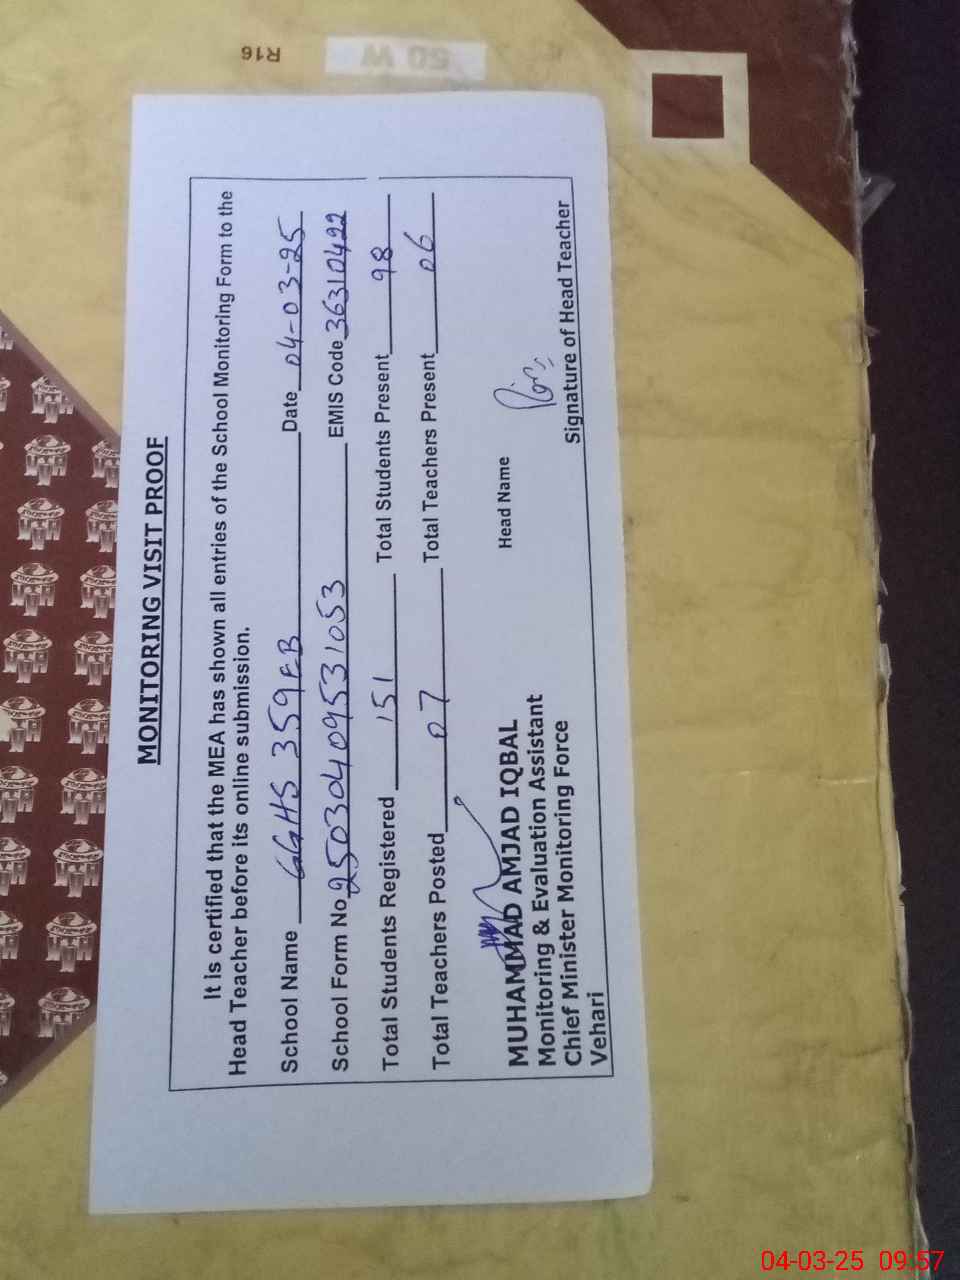 MONITORING VISIT PROOF
It is certified that the MEA has shown all entries of the School Monitoring Form to the
Head Teacher before its online submission.
School Name GGHS 359EB Date 04-03-25
School Form No 25030409531053 EMIS Code 36310422
Total Students Registered 151 Total Students Present 98
Total Teachers Posted 07 Total Teachers Present 06
MUHAMMAD AMJAD IQBAL
Monitoring & Evaluation Assistant
Chief Minister Monitoring Force
Vehari
Head Name
Signature of Head Teacher
R16
04-03-25 09:57